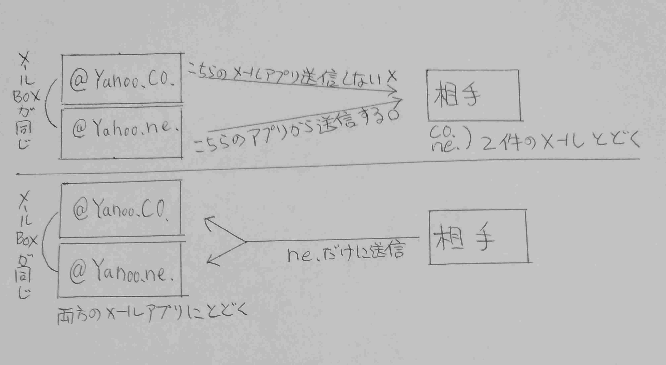 メールBOXが同じ
@Yahoo.CO.
@Yahoo.ne.
こちらのメールアプリ送信しない×
こちらのアプリから送信する○
相手
CO.
ne.) 2件のメールとどく
メールBOXが同じ
@Yahoo.CO.
@Yahoo.ne.
ne.だけに送信
相手
両方のメールアプリにとどく